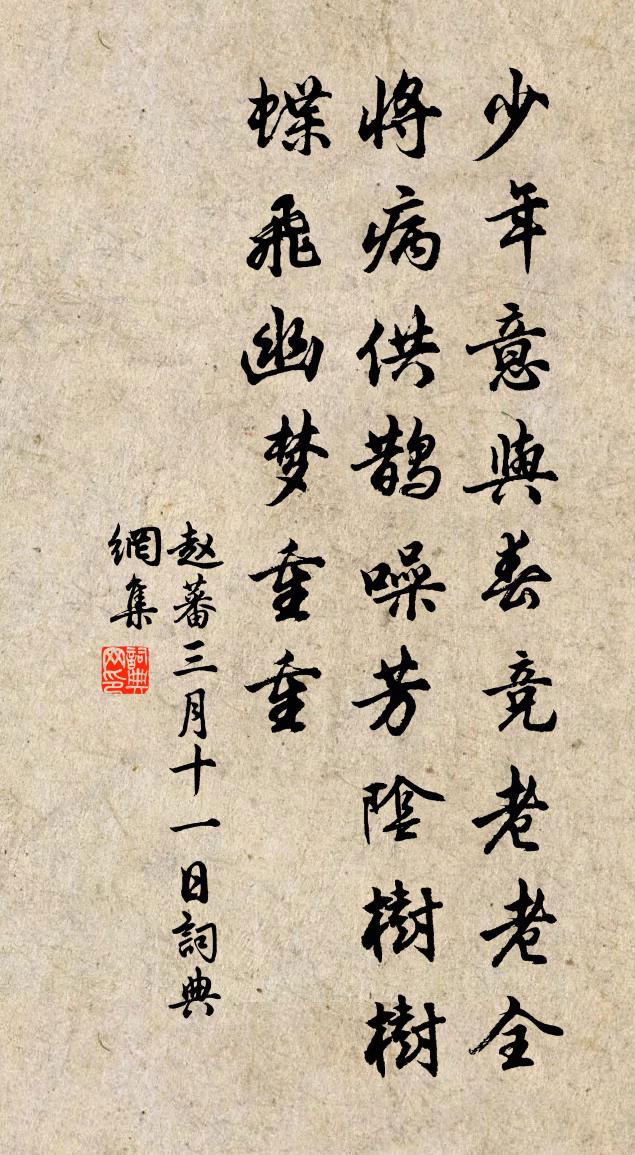 少年意與春竞老老全
將病供鹊噪芳陰樹樹
蝶飛幽梦重重
赵蕃三月十一日詞典
網集
詞典
网印